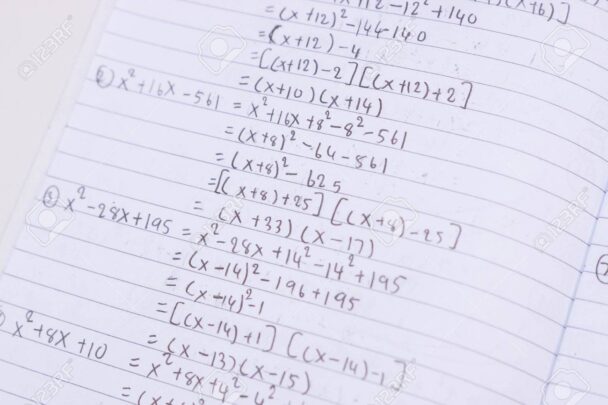 +12 - 12² + 140
(x+6)]
= (x+12)² - 144 - 140
= (x+12) - 4
= [(x+12) - 2] [(x+12) + 2]
= (x+10) (x+14)
x² + 16x - 561 = x² + 16x + 8² - 8² - 561
= (x+8)² - 64 - 561
= (x+8)² - 625
= [(x+8) + 25] [(x+8) - 25]
= (x+33) (x-17)
③ x² - 28x + 195 = x² - 28x + 14² - 14² + 195
= (x-14)² - 196 + 195
= (x-14)² - 1
= [(x-14) + 1] [(x-14) - 1]
= (x-13) (x-15)
x² + 8x + 10 = x² + 8x + 4² - 4²
123RF